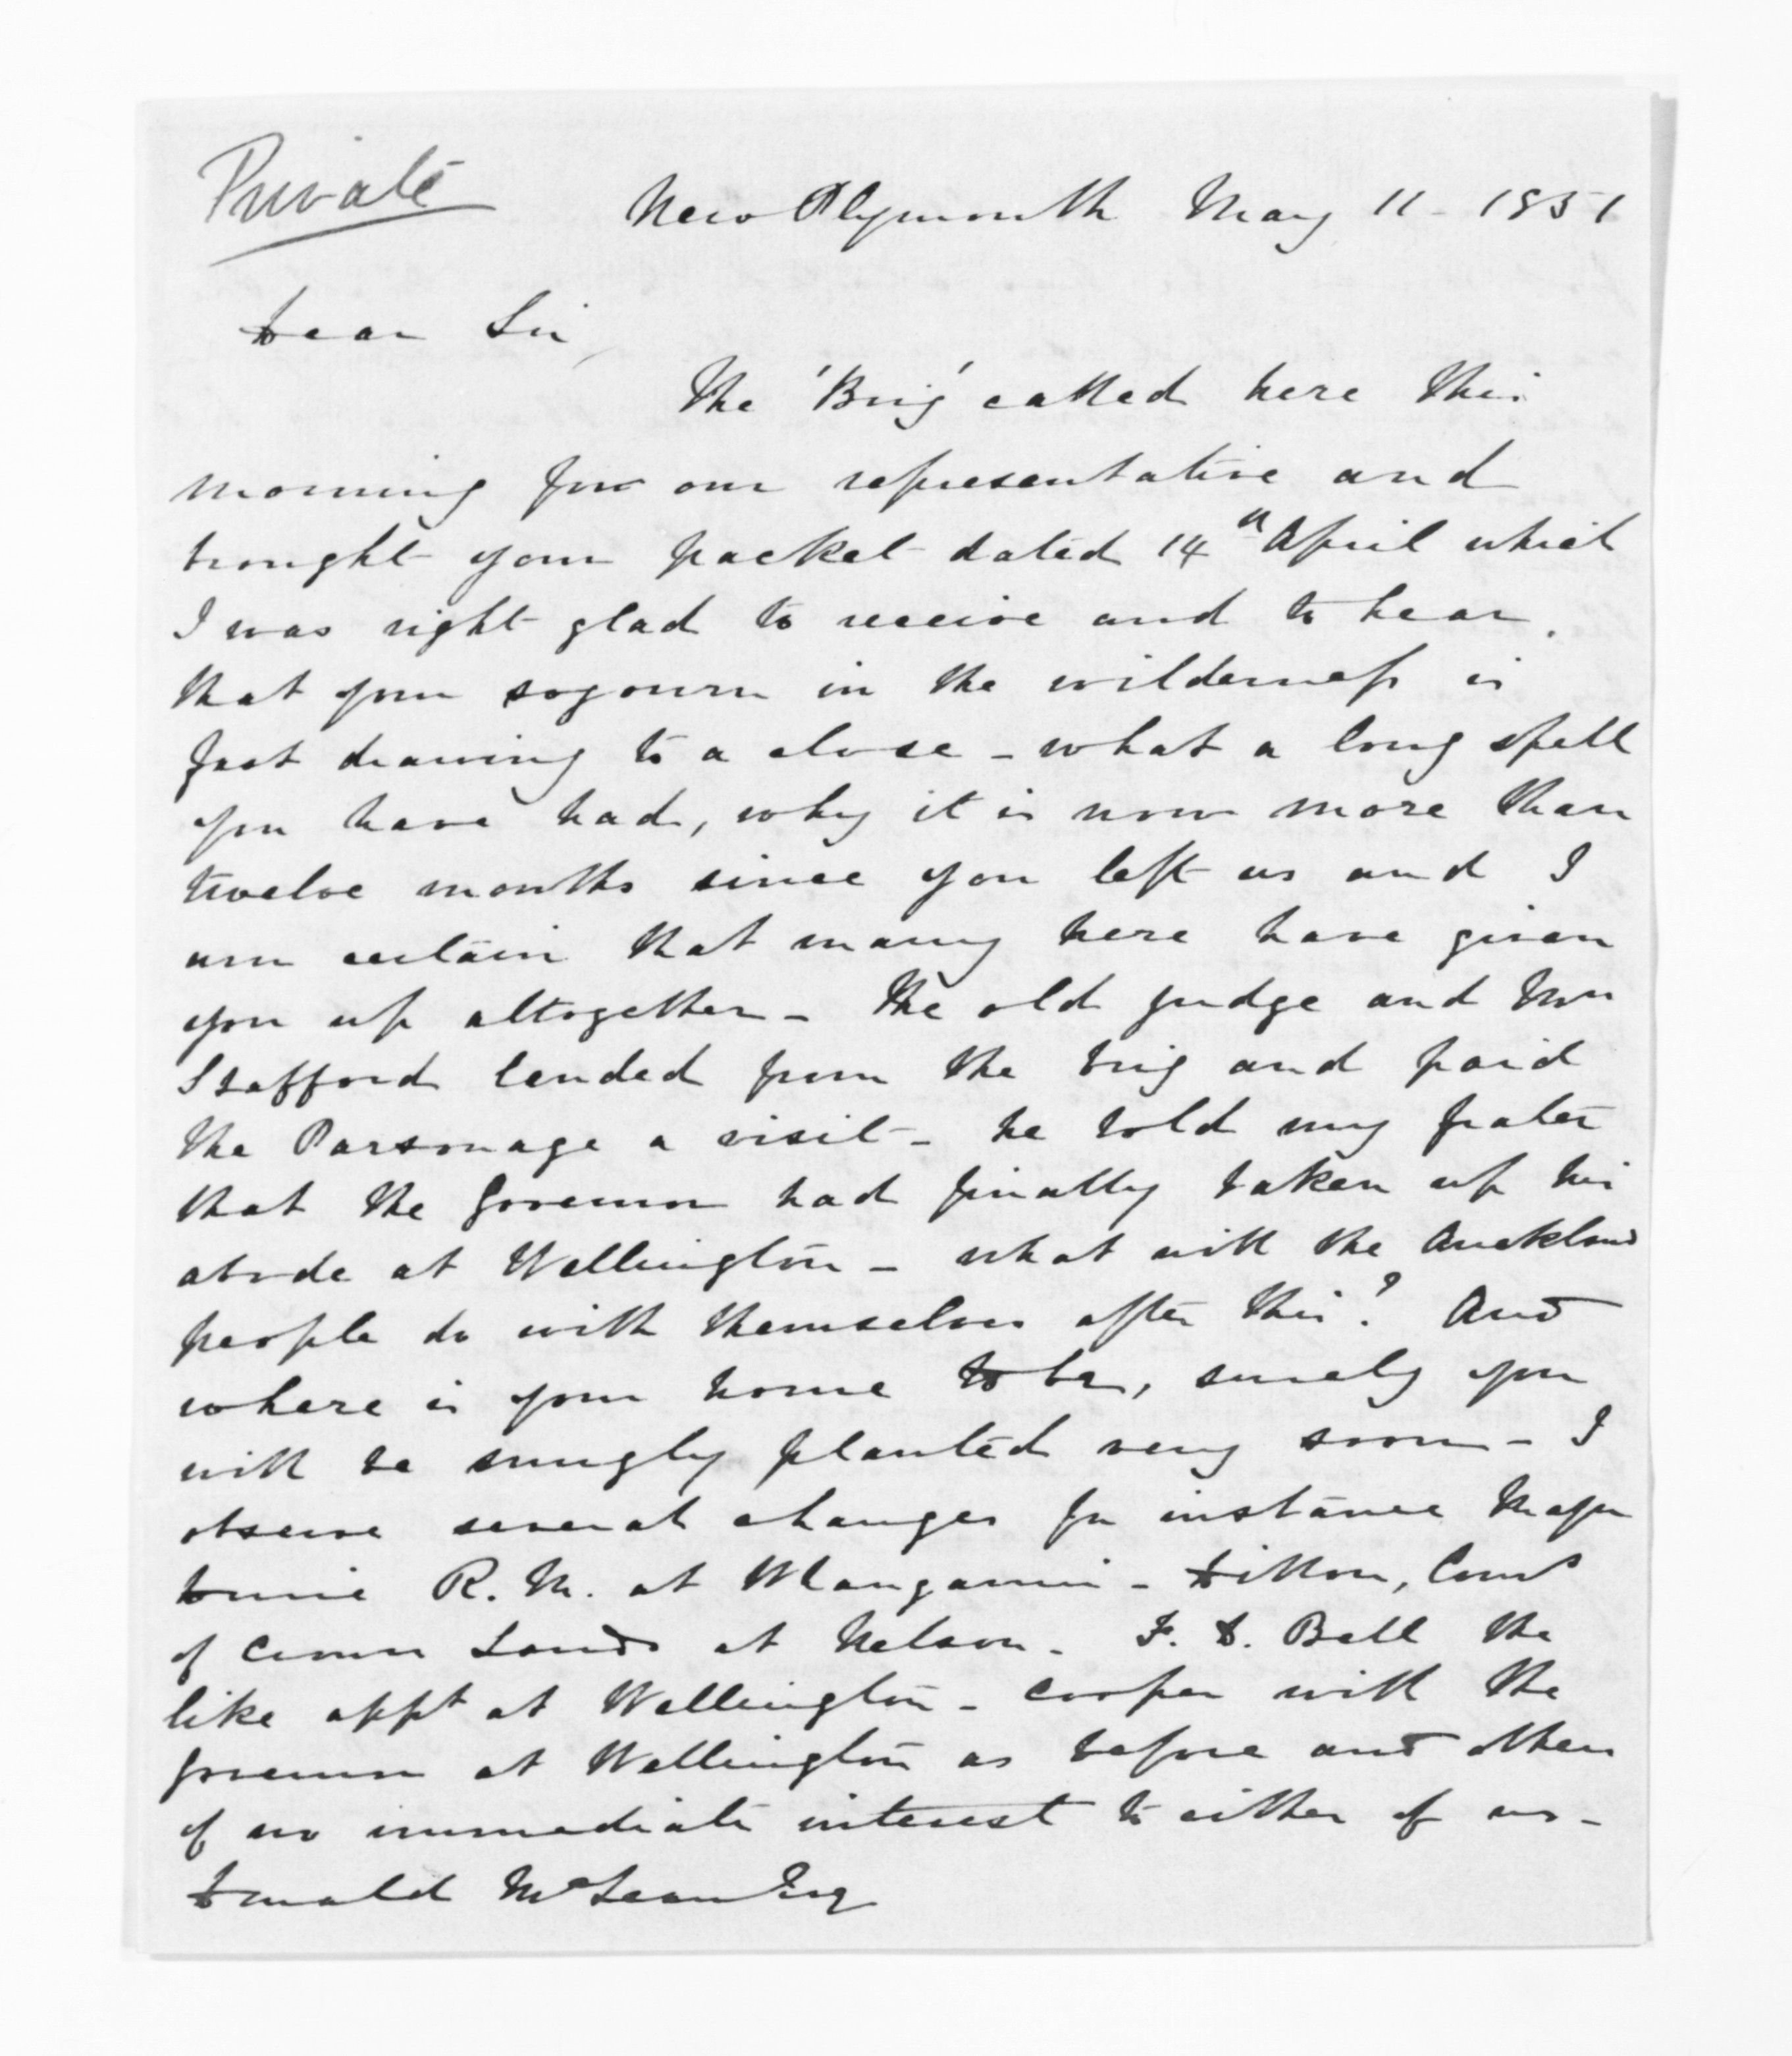 Private
New Plymouth May 11 - 1851
Dear Sir,
The 'Brig' called here this
morning for our representative and
brought your packet dated 14th April which
I was right glad to receive and to hear
that your sojourn in the wilderness is
fast drawing to a close - what a long spell
you have had, why it is now more than
twelve months since you left us and I
am certain that many here have given
you up altogether - The old judge and Mrs
Stafford landed from the brig and paid
the Parsonage a visit - he told my frater
that the Governor had finally taken up his
abode at Wellington - what will the Auckland
people do with themselves after this? And
where is your home to be, surely you
will be snugly planted very soon - I
observe several changes for instance Major
Durie R. M. at Wanganui - Dillon, Comr
of Crown Lands at Nelson - F. D. Bell the
like appt at Wellington - Cooper with the
Governor at Wellington as before and others
of no immediate interest to either of us -
Donald McLean Esq